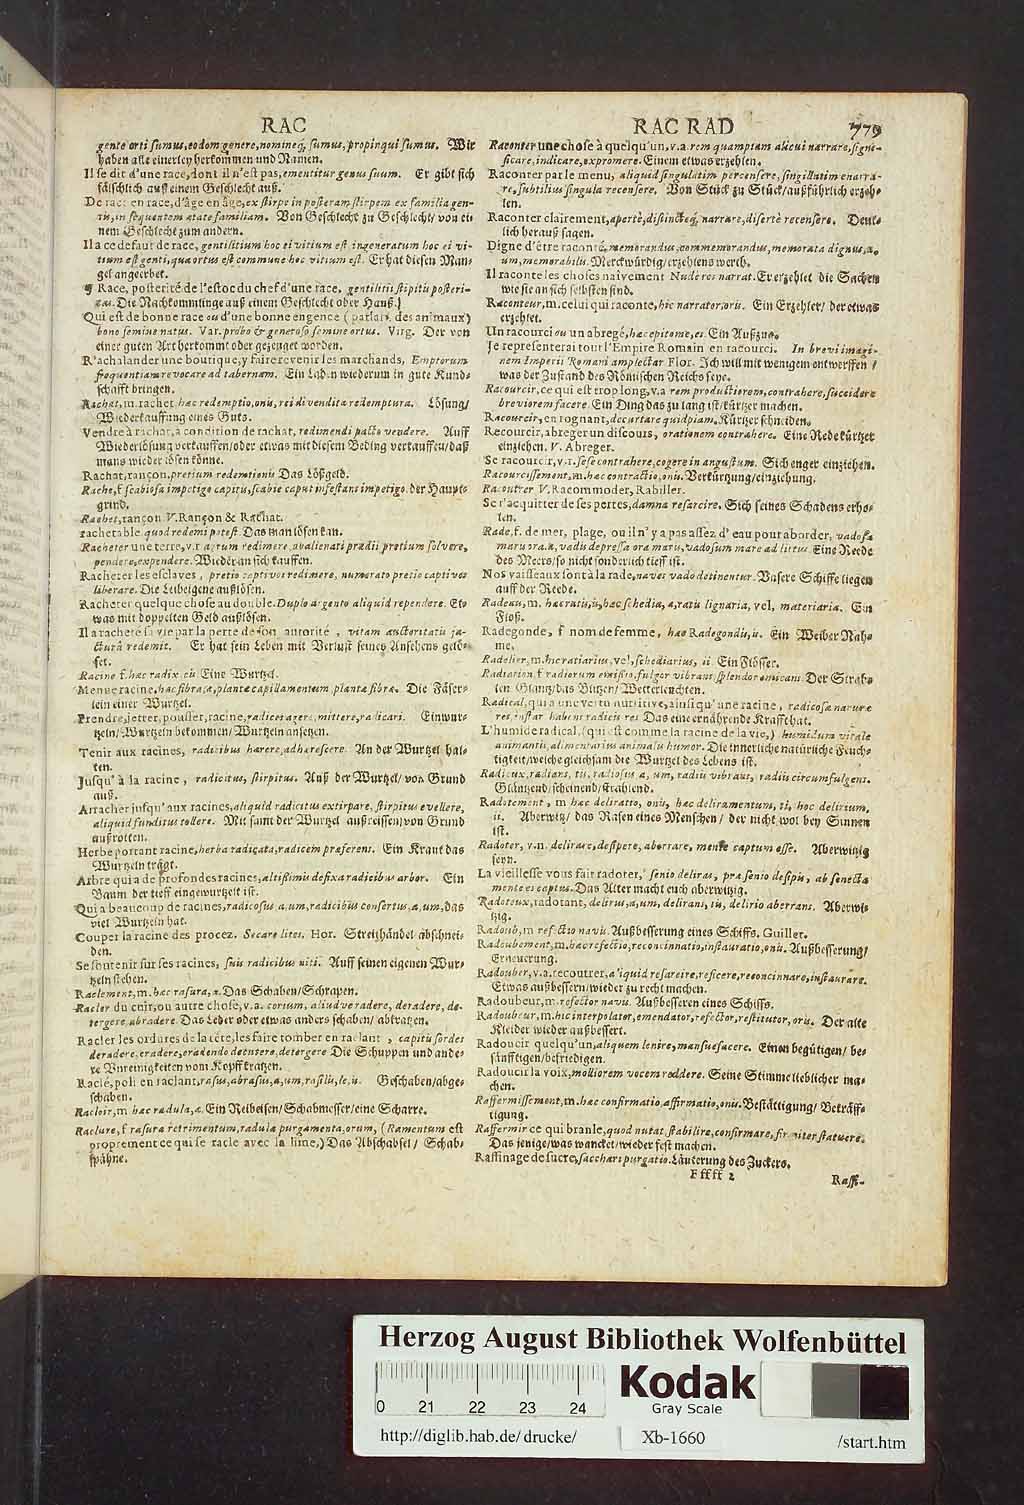 RAC
gente orti sumus, eodom genere, nomineq́, sumus, propinqui sumus. Wir
haben alle einerley herkommen und Namen.
Il se dit d'une race, dont il n'est pas, ementitur genus suum. Er gibt sich
fälschlich auß einem Geschlecht auß.
De race en race, d'âge en âge, ex stirpe in posteram stirpem ex familia gen-
tis, in sequentem ætate familiam. Von Geschlecht zu Geschlecht/ von ei-
nem Geschlecht zum andern.
Il a ce defaut de race, gentilitium hoc ei vitium est ingeneratum hoc ei vi-
tium est genti, qua ortus est commune hoc vitium est. Er hat diesen Man-
gel angeerbet.
¶ Race, posterité de l'estoc du chef d'une race, gentilitii stipitis posteri-
tas. Die Nachkommlinge auß einem Geschlecht oder Hauß.
Qui est de bonne race ou d'une bonne engence (parlant des animaux)
bono semine natus. Var. probo & generoso semine ortus. Virg. Der von
einer guten Art herkomt oder gezeuget worden.
R'achalander une boutique, y faire revenir les marchands, Emptorum
frequentiam revocare ad tabernam. Ein Laden wiederum in gute Kund-
schafft bringen.
Rachat, m. rachet, hæc redemptio, onis, rei divendita redemptura. Lösung/
Wiederkauffung eines Guts.
Vendre à rachat, à condition de rachat, redimendi pacto vendere. Auff
Wiederlösung verkauffen/ oder etwas mit diesem Beding verkauffen/ daß
mans wieder lösen könne.
Rachat, rançon, pretium redemtionis Das Lößgeld.
Rache, f. scabiosa impetigo capitis, scabie caput infestans impetigo. der Haupt-
grind.
Rachet, rançon V. Rançon & Rachat.
rachetable quod redemi potest. Das man lösen kan.
Racheter une terre, v. r. agrum redimere, abalienati prædii pretium solvere,
pendere, expendere. Wieder an sich kauffen.
Racheter les esclaves, pretio captivos redimere, numerato pretio captivos
liberare. Die Leibeigene außlösen.
Racheter quelque chose au double. Duplo argento aliquid rependere. Et-
was mit doppelten Geld außlösen.
Il a racheté sa vie par la perte de son autorité, vitam auctoritatis ja-
cturâ redemit. Er hat sein Leben mit Verlust seines Ansehens gelö-
set.
Racine f. hæc radix cis Eine Wurtzel.
Menue racine, hæc fibra, æ, plantæ capillamentum, plantæ fibra. Die Fäser-
lein einer Wurtzel.
Prendre, jetter, pousser, racine, radices agere, mittere, radicari. Einwur-
tzeln/ Wurtzeln bekommen/ Wurtzeln ansetzen.
Tenir aux racines, radicibus hærere, adhærescere. An der Wurtzel hal-
ten.
Jusqu'à la racine, radicitus, stirpitus. Auß der Wurtzel/ von Grund
auß.
Arracher jusqu'aux racines, aliquid radicitus extirpare, stirpitus evellere,
aliquid funditus tollere. Mit samt der Wurtzel außreissen/ von Grund
außrotten.
Herbe portant racine, herba radicata, radicem præferens. Ein Kraut das
Wurtzeln trägt.
Arbre qui a de profondes racines, altissimis defixa radicibus arbor. Ein
Baum der tieff eingewurtzelt ist.
Qui a beaucoup de racines, radicosus, a, um, radicibus consertus, a, um, das
viel Wurtzeln hat.
Couper la racine des procez. Secare lites. Hor. Streithändel abschnei-
den.
Se soutenir sur ses racines, suis radicibus niti. Auff seinen eigenen Wur-
tzeln stehen.
Raclement, m. hæc rasura, æ. Das Schaben/ Schrapen.
Racler du cuir, ou autre chose, v. a. corium, aliud veradere, deradere, de-
tergere, abradere. Das Leder oder etwas anders schaben/ abkratzen.
Racler les ordures de la tête, les faire tomber en raclant, capitis sordes
deradere, eradere, eradendo detutere, detergere Die Schuppen und ande-
re Unreinigkeiten vom Kopff kratzen.
Raclé, poli en raclant, rasus, abrasus, a, um, rasilis, le, is. Geschaben/ abge-
schaben.
Racloir, m hæc radula, æ. Ein Reibeisen/ Schabmesser/ eine Scharre.
Raclure, f. rasura retrimentum, radula purgamenta, orum, (Ramentum est
proprement ce qui se racle avec la lime,) Das Abschabsel/ Schab-
spähne.
RAC RAD 779
Raconter une chose à quelqu'un, v. a. rem quampiam alicui narrare, signi-
ficare, indicare, expromere. Einem etwas erzehlen.
Raconter par le menu, aliquid singulatim percensere, singillatim enarra-
re, subtilius singula recensere. Von Stück zu Stück/ außführlich erzeh-
len.
Raconter clairement, apertè, distincteq́, narrare, disertè recensere. Deut-
lich herauß sagen.
Digne d'être raconté, memorandus, commemorandus, memoratu dignus, a,
um, memorabilis. Merckwürdig/ erzehlens werth.
Il raconte les choses naivement Nude res narrat. Er erzehlet die Sachen
wie sie an sich selbsten sind.
Raconteur, m. celui qui raconte, hic narrator, oris. Ein Erzehler/ der etwas
erzehlet.
Un racourci ou un abregé, hæc epitome, es. Ein Außzug.
Je representerai tout l'Empire Romain en racourci. In brevi imagi-
nem Imperii Romani amplectar Flor. Ich will mit wenigem entwerffen/
was der Zustand des Römischen Reichs seye.
Racourcir, ce qui est trop long, v. a rem productiorem, contrahere, succidere
breviorem facere. Ein Ding das zu lang ist/ kürtzer machen.
Racourcir, en rognant, decurtare quidpiam. Kürtzer schneiden.
Recourcir, abreger un discours, orationem contrahere. Eine Rede kürtzer
einziehen. V. Abreger.
Se racourcir, v. r. sese contrahere, cogere in angustum. Sich enger einziehen.
Racourcissement, m. hæc contractio, onis. Verkürtzung/ einziehung.
Racoutrer V. Racommoder, Rabiller.
Se r'acquitter de ses pertes, damna resarcire. Sich seines Schadens erho-
len.
Rade, f. de mer, plage, ou il n'y a pas assez d'eau pour aborder, vadosa
maris ora, æ, vadis depressa ora maris, vadosum mare ad litus. Eine Reede
des Meers/ so nicht sonderlich tieff ist.
Nos vaisseaux sont à la rade, naves vado detinentur. Unsere Schiffe liegen
auff der Reede.
Radeau, m. hæc ratis, is, hæc schedia, æ, ratis lignaria, vel, materiaria. Ein
Floß.
Radegonde, f. nom de femme, hæc Radegondis, is. Ein Weiber Nah-
me.
Radelier, m. hic ratiarius, vel, schediarius, ii Ein Flösser.
Radiation, f radiorum emissio, fulgor vibrans, splendor emicans. Der Strah-
len Glantz/ das Blitzen/ Wetterleuchten.
Radical, qui a une vertu nutritive, ainsi qu'une racine, radicosa naturæ
res, instar habens radicis res Das eine ernährende Krafft hat.
L'humide radical, (qui est comme la racine de la vie,) humidum vitale
animantis, alimentarius animalis humor. Die innerliche natürliche Feuch-
tigkeit/ welche gleichsam die Wurtzel des Lebens ist.
Radieux, radians, tis, radiosus a, um, radiis vibrans, radiis circumfulgens.
Gläntzend/ scheinend/ strahlend.
Radotement, m hæc deliratio, onis, hæc deliramentum, ti, hoc delirium,
ii. Aberwitz/ das Rasen eines Menschen/ der nicht wol bey Sinnen
ist.
Radoter, v. n. delirare, desipere, aberrare, mente captum esse. Aberwitzig
seyn.
La vieillesse vous fait radoter, senio deliras, præ senio desipis, ab senecta
mente es captus. Das Alter macht euch aberwitzig.
Radoteux, radotant, delirus, a, um, delirans, tis, delirio aberrans. Aberwi-
tzig.
Radoub, m refectio navis. Außbesserung eines Schiffs. Guiller.
Radoubement, m. hæc refectio, reconcinnatio, instauratio, onis. Außbesserung/
Erneuerung.
Radouber, v. a. recoutrer, aliquid resarcire, reficere, reconcinnare, instaurare.
Etwas außbessern/ wieder zu recht machen.
Radoubeur, m. refector navis. Außbesseren eines Schiffs.
Radoubeur, m. hic interpolator, emendator, refector, restitutor, oris. Der alte
Kleider wieder außbessert.
Radoucir quelqu'un, aliquem lenire, mansuefacere. Einen begütigen/ be-
sänfftigen/ befriedigen.
Radoucir la voix, molliorem vocem reddere. Seine Stimme lieblicher ma-
chen.
Raffermissement, m. hæc confirmatio, affirmatio, onis. Bestättigung/ Beträff-
tigung.
Raffermir ce qui branle, quod nutat, stabilire, confirmare, firmiter statuere.
Das jenige/ was wancket/ wieder fest machen.
Raffinage de sucre, sacchari purgatio. Läuterung des Zuckers.
Fffff 2
Raff-
Herzog August Bibliothek Wolfenbüttel
Kodak
Gray Scale
0 21 22 23 24
http://diglib.hab.de/ drucke/ Xb-1660 /start.htm